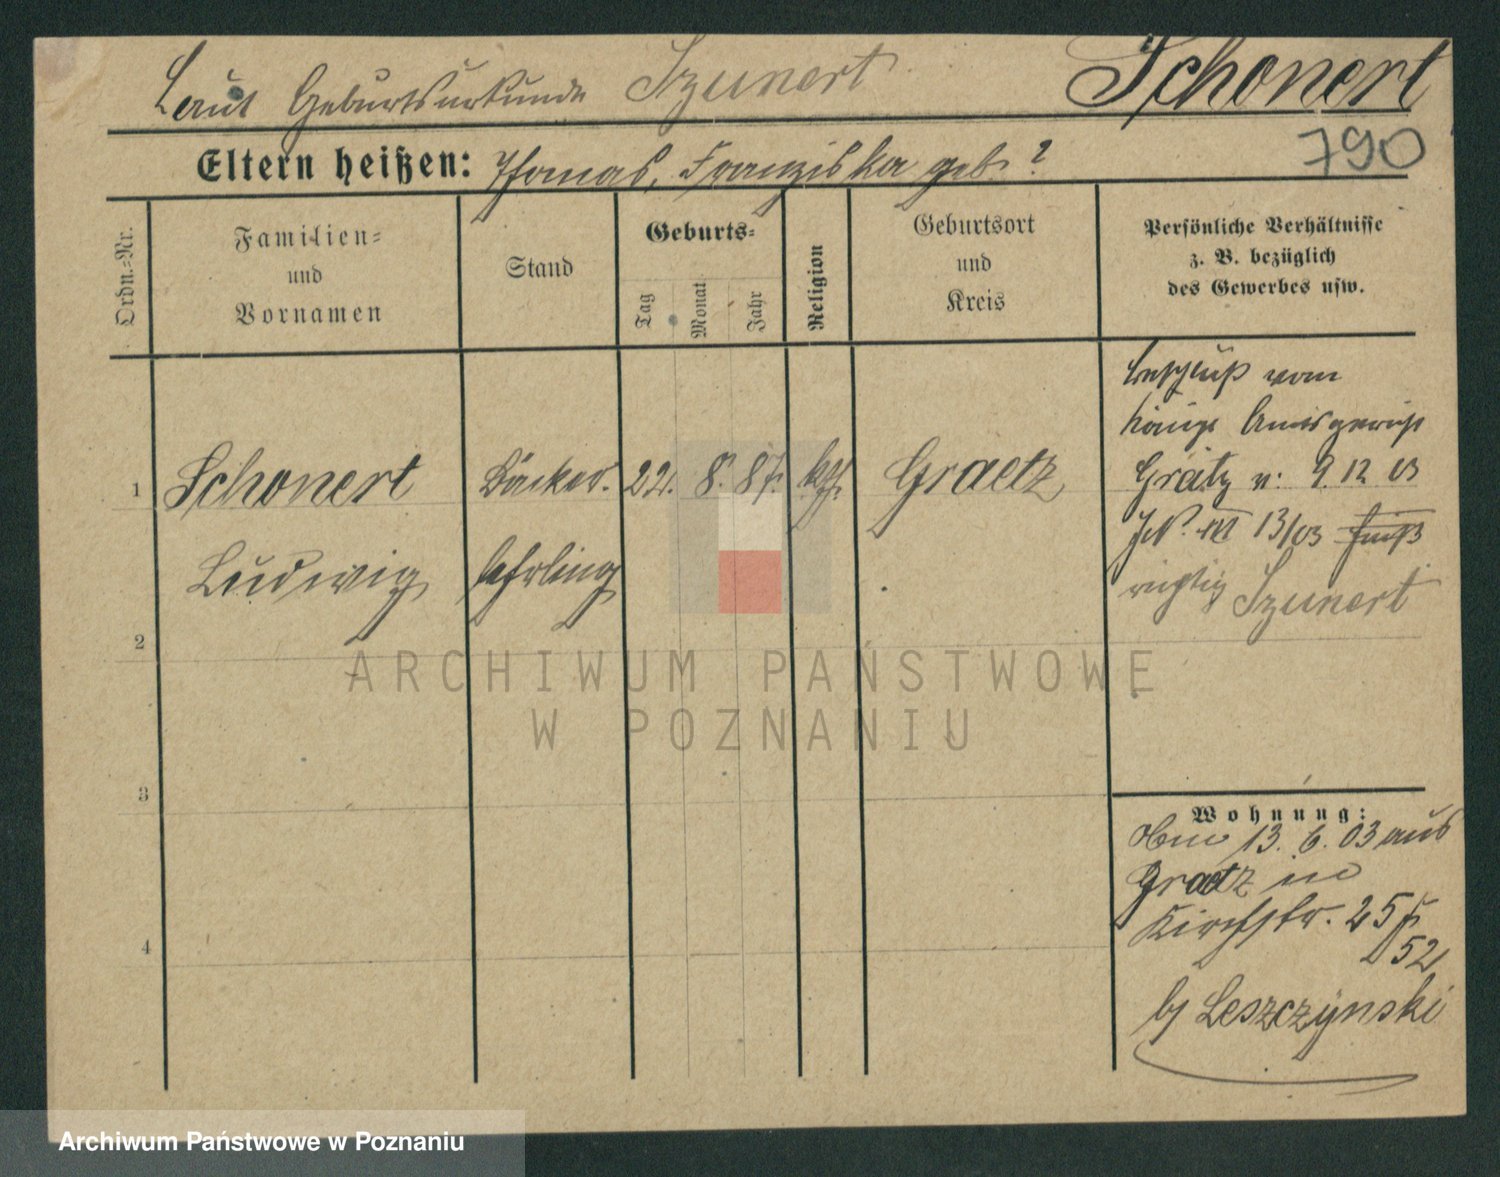 Laut Geburtsurkunde Szunert Schonert
790
Eltern heißen: Thomas, Franziska geb. ?
Ordn.-Nr.
Familien-
und
Vornamen
Stand
Geburts-
Tag
Monat
Jahr
Religion
Geburtsort
und
Kreis
Persönliche Verhältnisse
z. B. bezüglich
des Gewerbes usw.
1 Schonert Bäcker- 22. 8. 87. kth. Graetz
Ludwig lehrling
2
3
4
Beschluß vom
königl Amtsgericht
Grätz v: 9. 12 03
III 13/03
richtig Szunert
Wohnung:
13. 6. 03 aus
Graetz in
Kirchstr. 25
52
by Leszczynski
ARCHIWUM PAŃSTWOWE
W POZNANIU
Archiwum Państwowe w Poznaniu